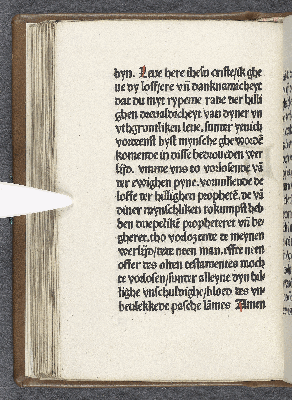 dyn. Leue here ihesu criste/ik ghe
ue dy loff ere vñ danknamicheyt
dat du myt rypeme rade der hilli
ghen dreualdicheyt van dyner vn
vthgruntliken leue, sunter
byst mynsche ghewordē
komende in disse bedroueden wer
lyd. vmme vns to vorlosende vā
der ewighen pyne. voruullende de
loffte der hillighen prophetē. de vā
diner mynschliken tokumpst heb
ben propheteret vñ be
gheret. tho vorlozente de meynen
werlyd/dat neen man. effte neen
offer des olden testamentes moch
te vorlosen/sunter alleyne dyn hil
lighe vnschuldighe/bloed des vn
beulekkede pasche lāmes Amen